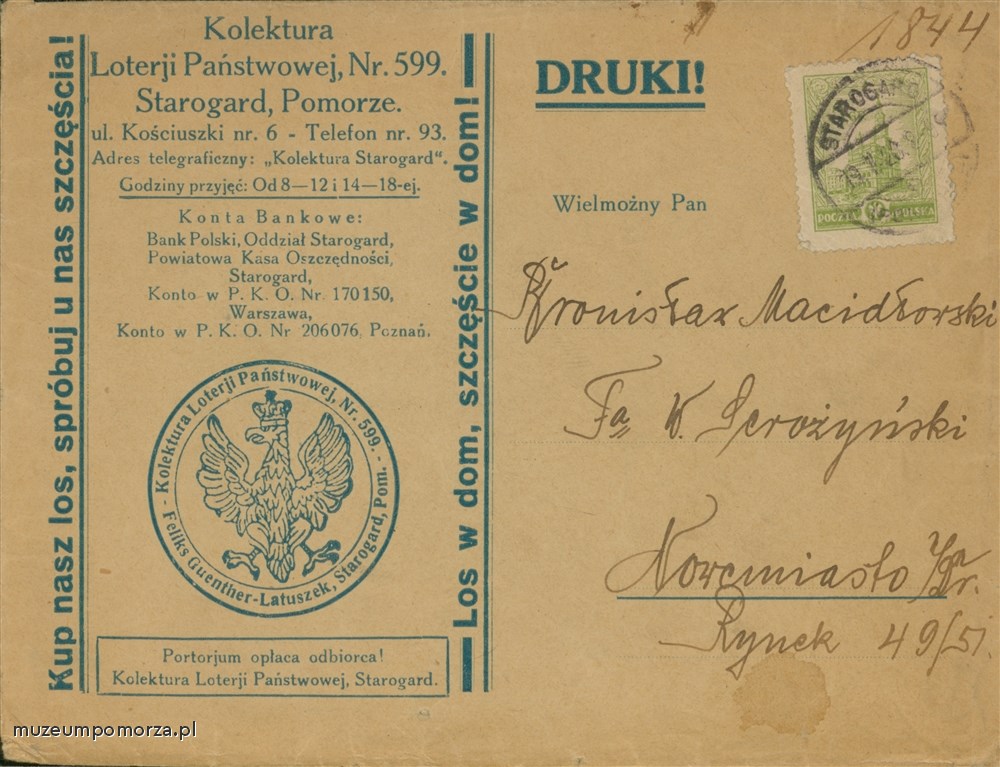 Kup nasz los, spróbuj u nas szczęścia!
Kolektura
Loterji Państwowej, Nr. 599.
Starogard, Pomorze.
ul. Kościuszki nr. 6 - Telefon nr. 93.
Adres telegraficzny: „Kolektura Starogard".
Godziny przyjęć: Od 8—12 i 14—18-ej.
Konta Bankowe:
Bank Polski, Oddział Starogard,
Powiatowa Kasa Oszczędności,
Starogard,
Konto w P. K. O. Nr. 170150,
Warszawa,
Konto w P. K. O. Nr 206076, Poznań.
- Kolektura Loterji Państwowej, Nr. 599. -
Feliks Guenther-Latuszek, Starogard, Pom.
Portorjum opłaca odbiorca!
Kolektura Loterji Państwowej, Starogard.
Los w dom, szczęście w dom!
DRUKI!
1844
STAROGARD
POCZTA POLSKA
Wielmożny Pan
Bronisław Macidłowski
Fa W. Serożyński
Nowemiasto
Rynek 49/51.
muzeumpomorza.pl